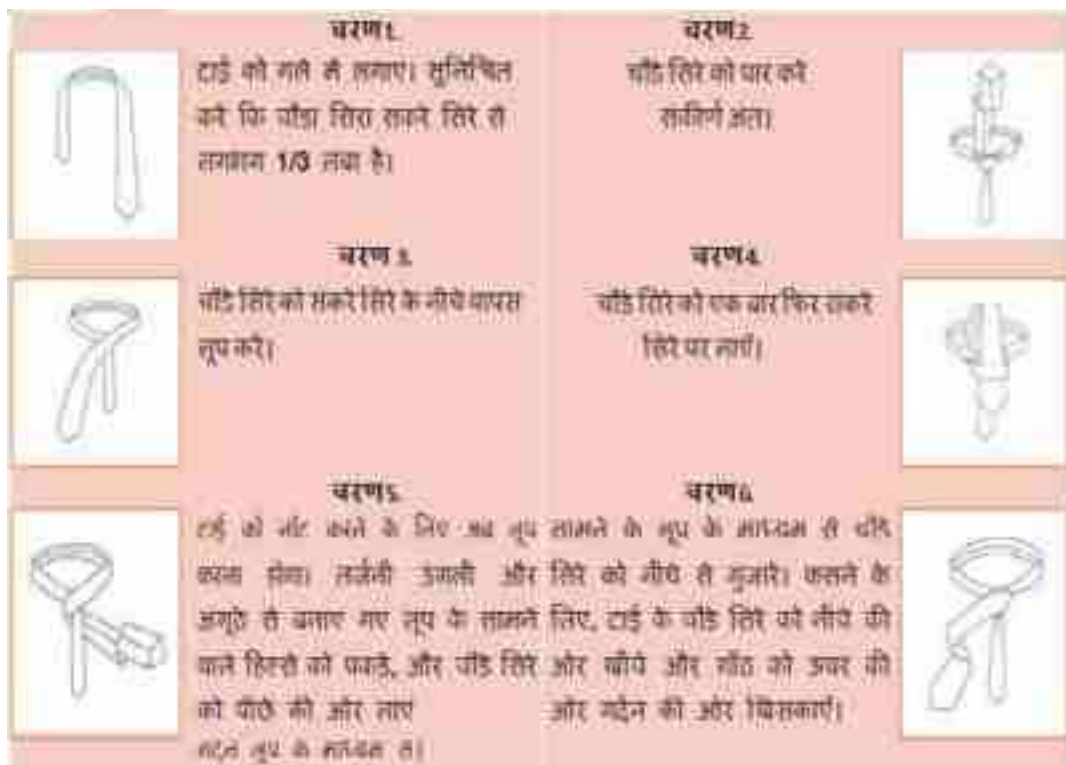 चरण1.
टाई को गले में लगाए। सुनिश्चित
करे कि चौड़ा सिरा सकरे सिरे से
लगभग 1/3 लंबा है।
चरण2.
चौड़े सिरे को पार करे
सकीर्ण अंत।
चरण 3.
चौड़े सिरे को सकरे सिरे के नीचे वापस
लूप करे।
चरण4.
चौड़े सिरे को एक बार फिर सकरे
सिरे पर लाएँ।
चरण5.
टाई को नॉट करने के लिए अब लूप
करना होगा। तर्जनी उंगली और
अगूठे से बनाए गए लूप के सामने
वाले हिस्से को पकड़े, और चौड़े सिरे
को पीछे की ओर लाए
गर्दन लूप के माध्यम से।
चरण6.
सामने के लूप के माध्यम से चौड़े
सिरे को नीचे से गुजारे। कसने के
लिए, टाई के चौड़े सिरे को नीचे की
ओर खीचे और गाँठ को ऊपर की
ओर गर्दन की ओर खिसकाएँ।